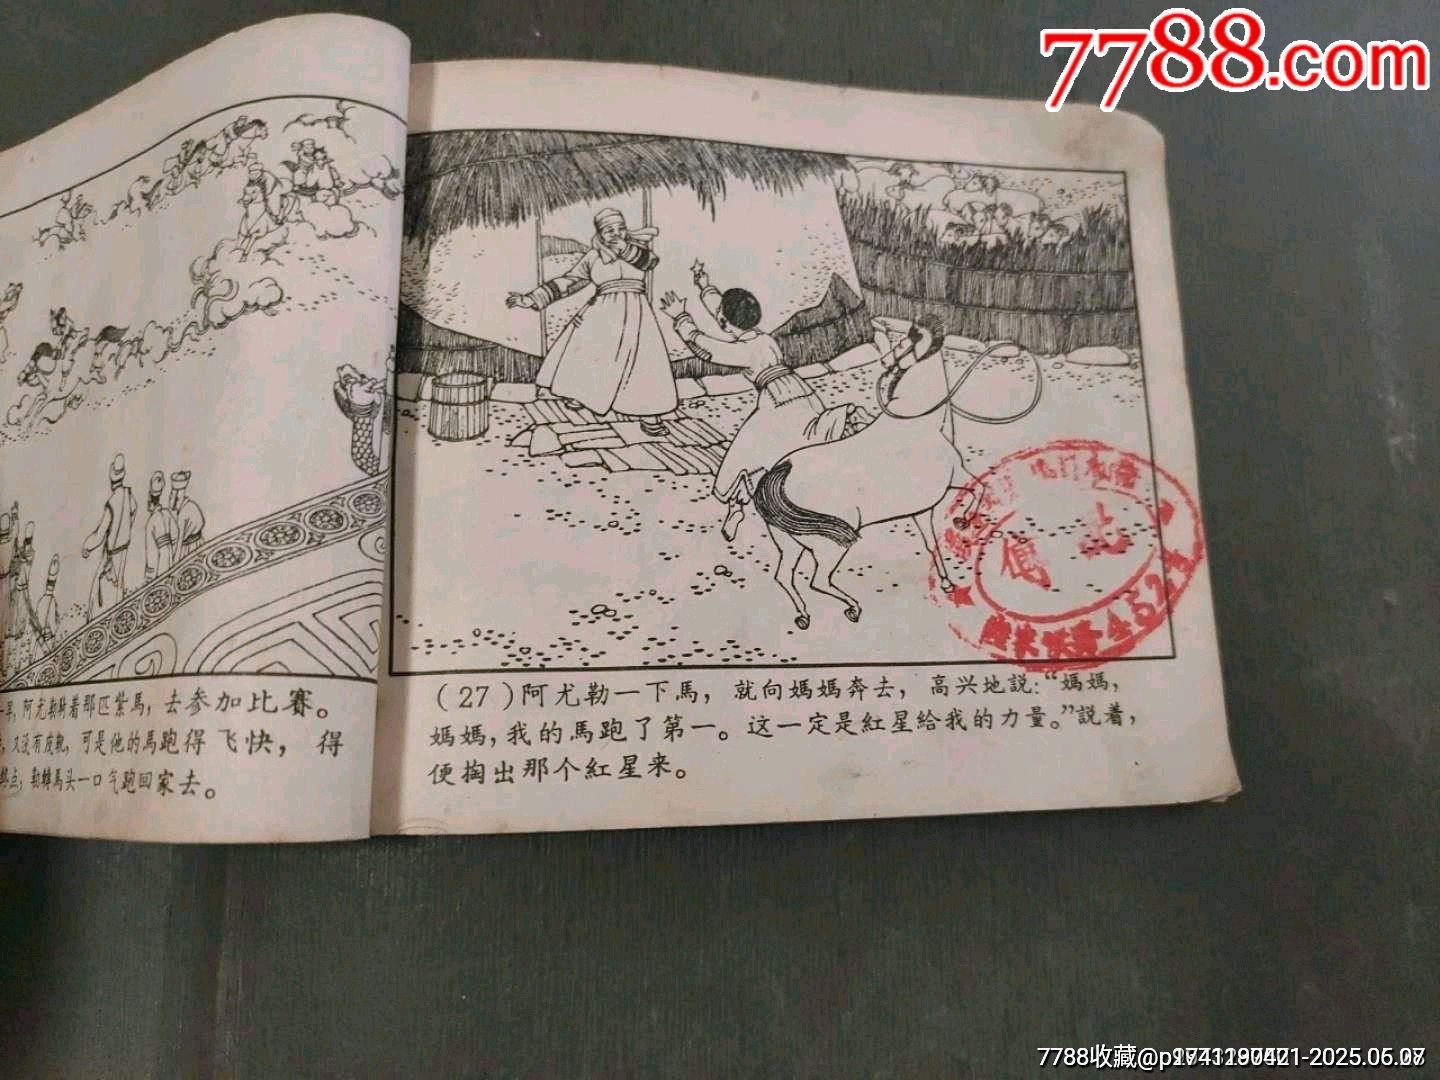 7788.com
一早，阿尤勒騎着那匹紫馬，去参加比賽。
又没有皮靴，可是他的馬跑得飞快，得
終点，勒轉馬头一口气跑回家去。
(27)阿尤勒一下馬，就向媽媽奔去，高兴地説：“媽媽，
媽媽，我的馬跑了第一。这一定是紅星給我的力量。”説着，
便掏出那个紅星来。
7788收藏
2025.05.07